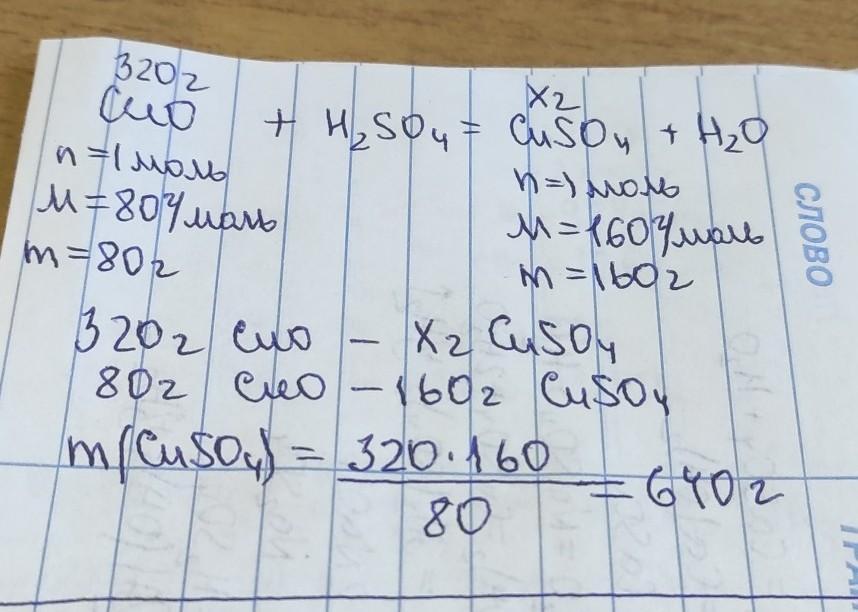 320г                    хг
CuO + H₂SO₄ = CuSO₄ + H₂O
n=1моль                n=1моль
M=80г/моль            M=160г/моль
m=80г                  m=160г
320г CuO – хг CuSO₄
80г CuO – 160г CuSO₄
m(CuSO₄) = 320·160 / 80 = 640г
СЛОВО